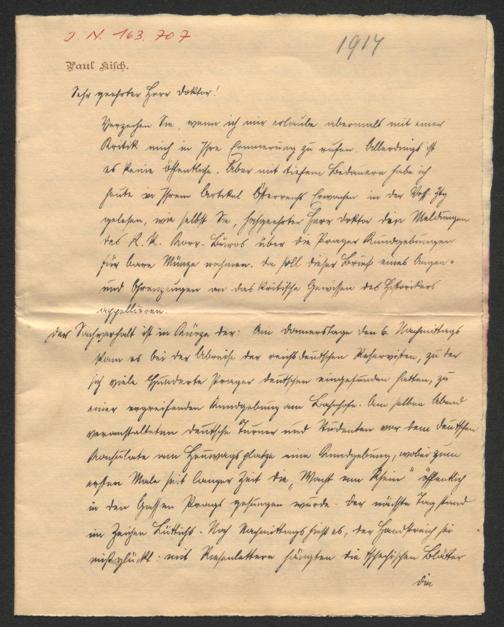 J. N. 163.707
1914
Paul Kisch.
Sehr geehrter Herr Doktor!
Verzeihen Sie, wenn ich mir erlaube abermals mit einer
Kritik mich in Ihre Erinnerung zu rufen. Allerdings ist
es keine öffentliche. Aber mit tiefem Bedauern habe ich
heute in Ihrem Artikel Österreichs Erwachen in der Voss. Ztg
gelesen, wie selbst Sie, hochgeehrter Herr Doktor den Meldungen
des K. K. Korr. Büros über die Prager Kundgebungen
für bare Münze nehmen. Da soll dieser Brief eines Augen-
und Ohrenzeugen an das kritische Gewissen des Historikers
appellieren.
Der Sachverhalt ist in Kürze der: Am Donnerstage den 6. Nachmittags
kam es bei der Abreise der reichsdeutschen Reservisten, zu der
sich viele Hunderte Prager Deutschen eingefunden hatten, zu
einer ergreifenden Kundgebung am Bahnhofe. Am selben Abend
veranstalteten deutsche Turner und Studenten vor dem deutschen
Konsulate am Heuwagsplatze eine Kundgebung, wobei zum
ersten Male seit langer Zeit die „Wacht am Rhein" öffentlich
in den Gassen Prags gesungen wurde. Der nächste Tag stand
im Zeichen Lüttichs. Noch Nachmittags hieß es, der Handstreich sei
mißglückt. Mit Riesenlettern hängten die tschechischen Blätter
die